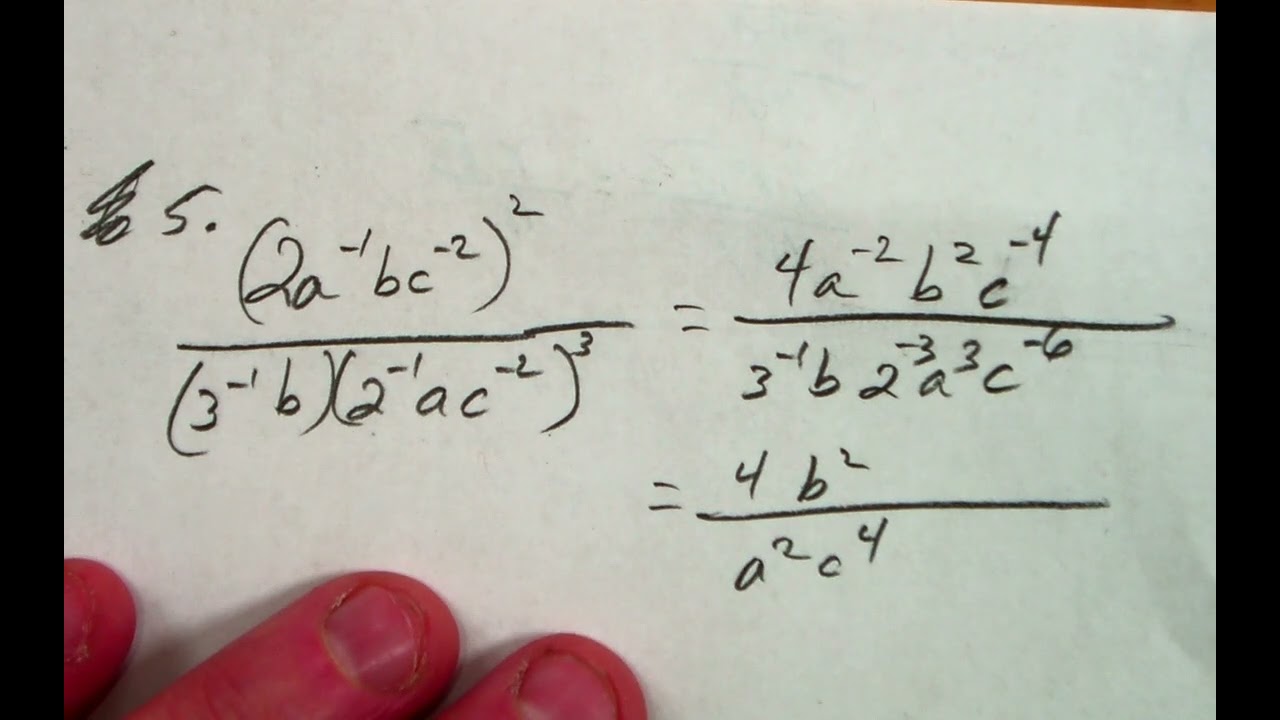 5. (2a⁻¹bc⁻²)² / (3⁻¹b)(2⁻¹ac⁻²)³ = 4a⁻²b²c⁻⁴ / 3⁻¹b2⁻³a³c⁻⁶
= 4b² / a²c⁴